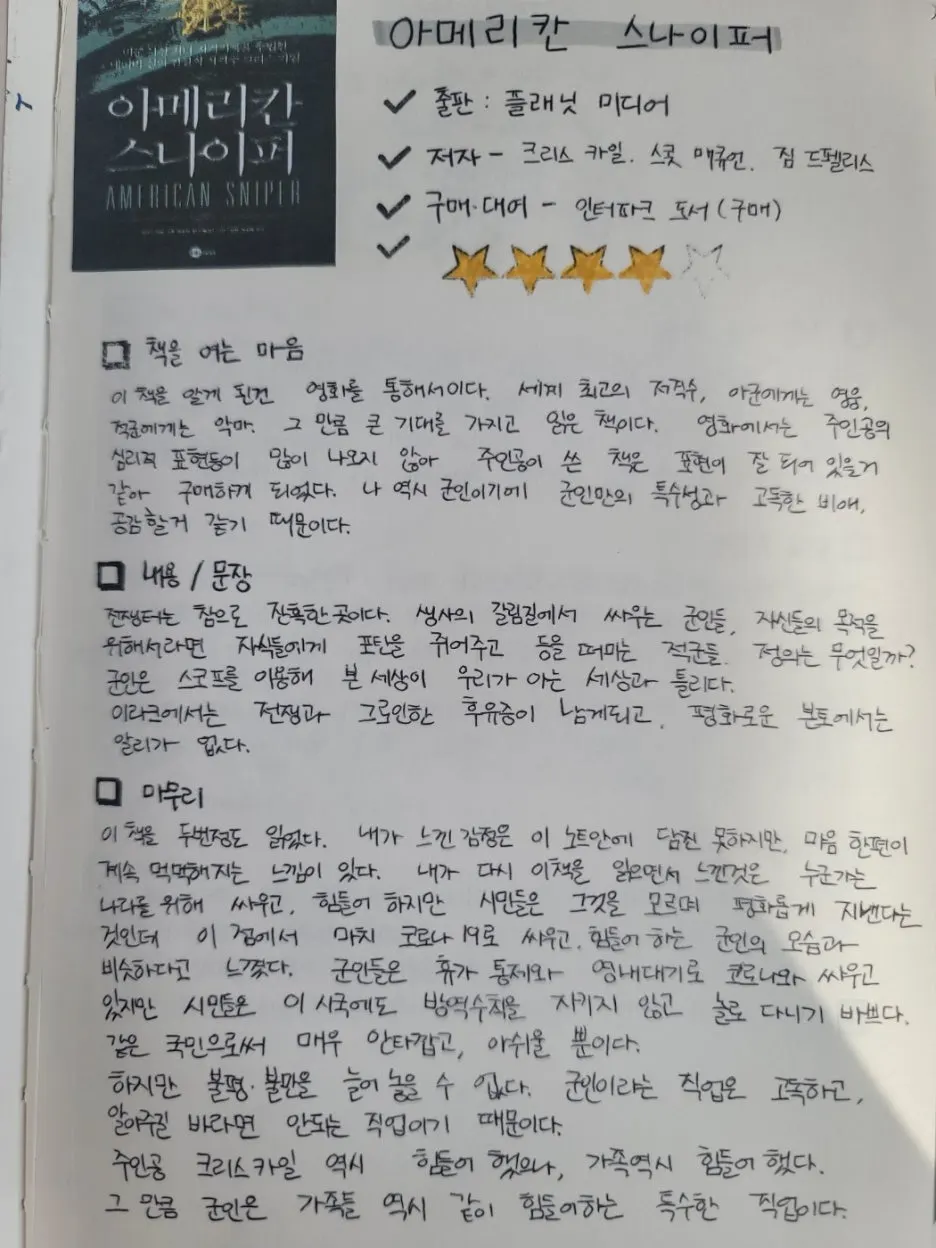 아메리칸 스나이퍼
AMERICAN SNIPER
아메리칸 스나이퍼
출판 : 플래닛 미디어
저자 - 크리스 카일. 스콧 매큐언. 짐 드펠리스
구매·대여 - 인터파크 도서(구매)
책을 여는 마음
이 책을 알게 된건 영화를 통해서이다. 세계 최고의 저격수, 아군에게는 영웅,
적군에게는 악마. 그 만큼 큰 기대를 가지고 읽은 책이다. 영화에서는 주인공의
심리적 표현등이 많이 나오지 않아 주인공이 쓴 책은 표현이 잘 되어 있을거
같아 구매하게 되었다. 나 역시 군인이기에 군인만의 특수성과 고독한 비애,
공감할거 같기 때문이다.
내용 / 문장
전쟁터는 참으로 잔혹한 곳이다. 생사의 갈림길에서 싸우는 군인들, 자신들의 목적을
위해서라면 자식들에게 포탄을 쥐어주고 등을 떠미는 적군들. 정의는 무엇일까?
군인은 스코프를 이용해 본 세상이 우리가 아는 세상과 틀리다.
이라크에서는 전쟁과 그로인한 후유증이 남게되고, 평화로운 본토에서는
알리가 없다.
마무리
이 책을 두번정도 읽었다. 내가 느낀 감정은 이 노트안에 담진 못하지만, 마음 한편이
계속 먹먹해지는 느낌이 있다. 내가 다시 이책을 읽으면서 느낀것은 누군가는
나라를 위해 싸우고, 힘들어 하지만 시민들은 그것을 모르며 평화롭게 지낸다는
것인데 이 점에서 마치 코로나 19로 싸우고, 힘들어 하는 군인의 모습과
비슷하다고 느꼈다. 군인들은 휴가 통제와 영내대기로 코로나와 싸우고
있지만 시민들은 이 시국에도 방역수칙을 지키지 않고 놀로 다니기 바쁘다.
같은 국민으로써 매우 안타깝고, 아쉬울 뿐이다.
하지만 불평·불만을 늘어 놓을 수 없다. 군인이라는 직업은 고독하고,
알아주길 바라면 안되는 직업이기 때문이다.
주인공 크리스카일 역시 힘들어 했으나, 가족역시 힘들어 했다.
그 만큼 군인은 가족들 역시 같이 힘들어하는 특수한 직업이다.